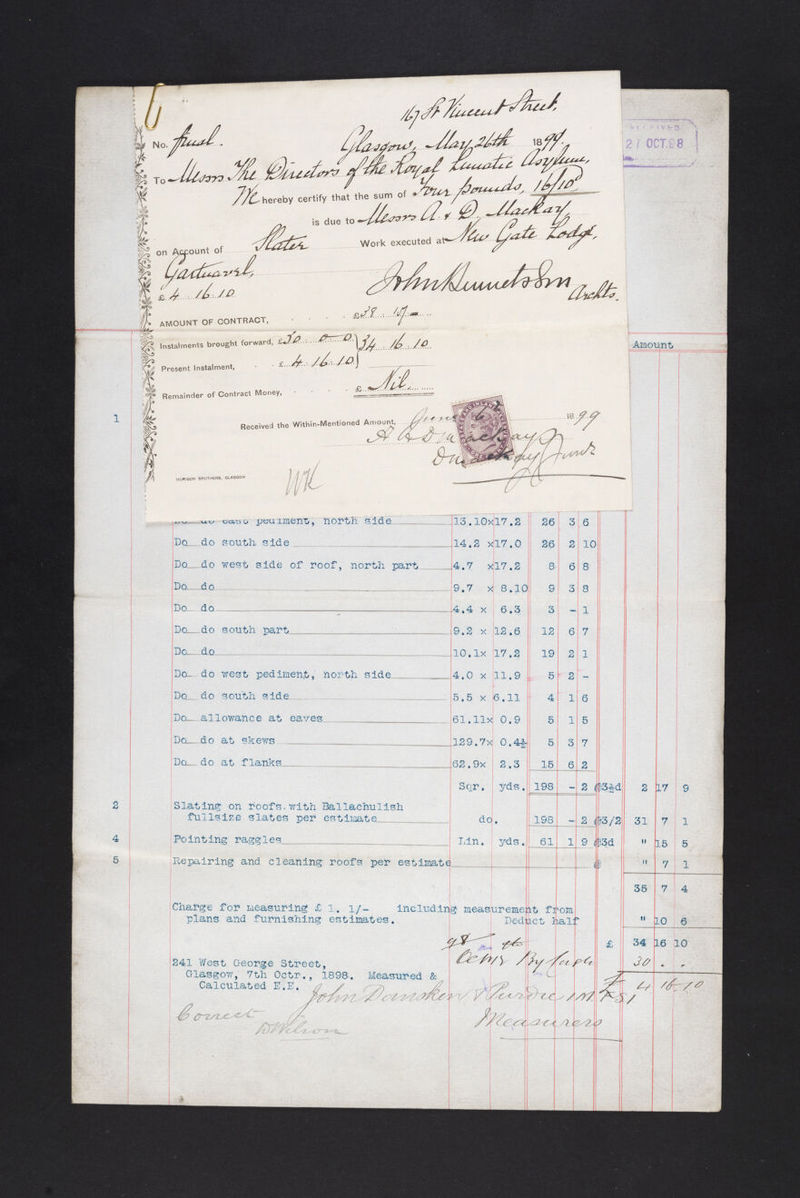 167 St Vincent Street,
No. final. Glasgow, May 26th 1899
To Messrs The Directors of the Royal Lunatic Asylum,
We hereby certify that the sum of Four pounds, 16/10d
is due to Messrs A. & D. Mackay
on Account of Slater Work executed at New Gate Lodge,
Gartnavel,
£4 16 10 Archts.
AMOUNT OF CONTRACT, £38 17 -
Instalments brought forward, £30 0 0 } 34 16 10
Present Instalment, £4 16 10
Remainder of Contract Money, £ Nil
Received the Within-Mentioned Amount, June 6th 1899
A & D Mackay
BROTHERS, GLASGOW
WK
RECEIVED
27 OCT. 98
Amount
1
Do do east pediment, north side 13.10x17.2 26 3 6
Do do south side 14.2 x17.0 26 2 10
Do do west side of roof, north part 4.7 x17.2 8 6 8
Do do 9.7 x 8.10 9 3 8
Do do 4.4 x 6.3 3 - 1
Do do south part 9.2 x 12.6 12 6 7
Do do 10.1x 17.2 19 2 1
Do do west pediment, north side 4.0 x 11.9 5 2 -
Do do south side 5.5 x 6.11 4 1 6
Do allowance at eaves 61.11x 0.9 5 1 5
Do do at skews 129.7x 0.4½ 5 3 7
Do do at flanks 62.9x 2.3 15 6 2
Sqr. yds. 198 - 2 @3½d 2 17 9
2 Slating on roofs with Ballachulish
fullsize slates per estimate do. 198 - 2 @3/2 31 7 1
4 Pointing raggles Lin. yds. 61 1 9 @3d " 15 5
5 Repairing and cleaning roofs per estimate @ " 7 1
35 7 4
Charge for measuring £ 1. 1/- including measurement from
plans and furnishing estimates. Deduct half " 10 6
£ 34 16 10
30 . .
£ 4 16 10
241 West George Street,
Glasgow, 7th Octr., 1898. Measured &
Calculated E.E.
John Dansken & Purdie
Measurers
Correct
D Wilson